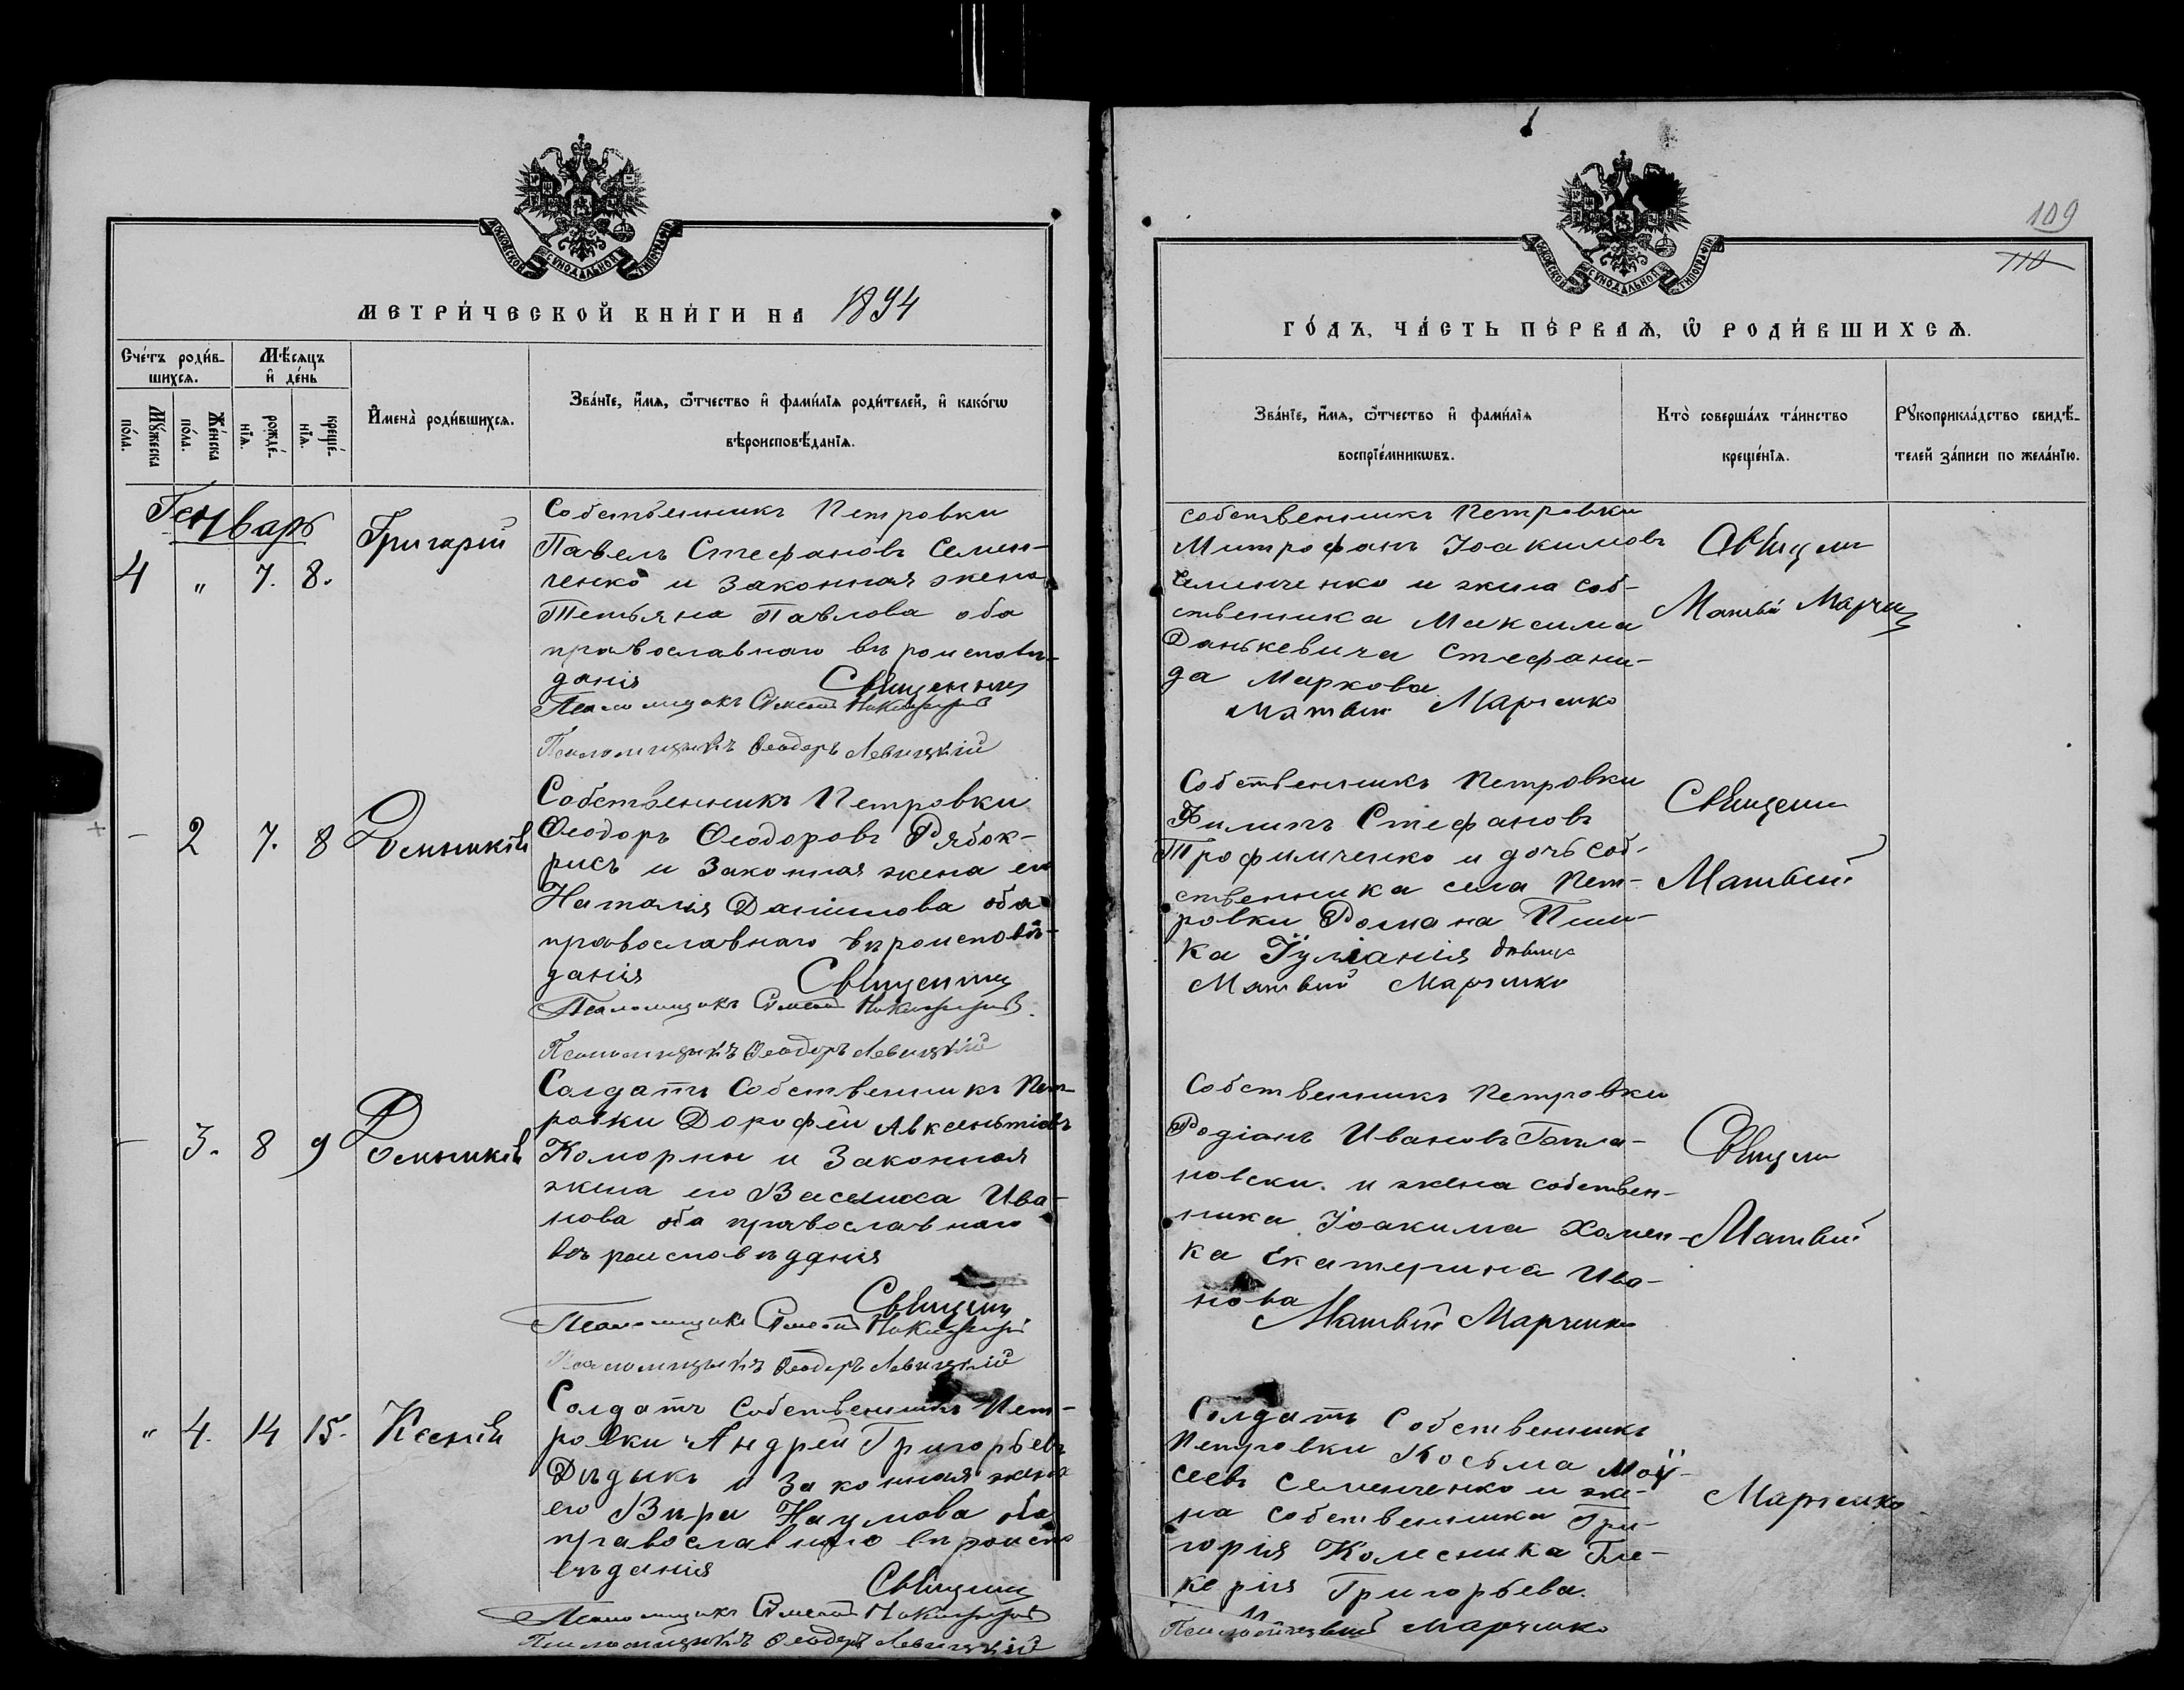 МОСКОВСКОЙ СѴНОДАЛЬНОЙ ТИПОГРАФІИ
МЕТРИ́ЧЕСКОЙ КНИ́ГИ НА 1894
Сче́тъ роди́в-
шихся.
Мѣ́сяцъ
и де́нь
Мꙋ́жеска
по́ла.
Же́нска
по́ла.
рожде́-
нїя.
креще́-
нїя.
Имена̀ роди́вшихся.
Зва́нїе, и́мя, ѻ҆́тчество и҆ фами́лїя роди́телей, и҆ како́гѡ
вѣроисповѣ́данїя.
Генварь
4 " 7. 8.
Григорій
Собственникъ Петровки
Павелъ Стефановъ Семен-
ченко и законная жена
Татьяна Павлова оба
православнаго вѣроисповѣ-
данія
Священникъ
Псаломщикъ Симеонъ Никифоровъ
Псаломщикъ Ѳеодоръ Левицкій
- 2 7. 8
Домникія
Собственникъ Петровки
Ѳеодоръ Ѳеодоровъ Рябок-
рисъ и законная жена его
Наталія Даніилова оба
православнаго вѣроисповѣ-
данія
Священникъ
Псаломщикъ Симеонъ Никифоровъ
Псаломщикъ Ѳеодоръ Левицкій
- 3. 8 9
Домникія
Солдатъ Собственникъ Пет-
ровки Дорофей Авксентіевъ
Коморны и Законная
жена его Василиса Ива-
нова оба православнаго
вѣроисповѣданія
Священ
Псаломщикъ Симеонъ Никифоровъ
Псаломщикъ Ѳеодоръ Левицкій
" 4. 14 15.
Ксенія
Солдатъ Собственникъ Пет-
ровки Андрей Григорьевъ
Дѣдыкъ и Законная жена
его Вѣра Наумова оба
православнаго вѣроиспо
вѣданія
Священ
Псаломщикъ Симеонъ Никифоровъ
Псаломщикъ Ѳеодоръ Левицкій
109
110
МОСКОВСКОЙ СѴНОДАЛЬНОЙ ТИПОГРАФІИ
ГО́ДЪ, ЧА́СТЬ ПЕ́РВАЯ, Ѡ҆ РОДИ́ВШИХСЯ.
Зва́нїе, и҆́мя, ѻ҆́тчество и҆ фами́лїя
воспрїе́мникѡвъ.
Кто̀ соверша́лъ та́инство
креще́нїя.
Рꙋкоприкла́дство свидѣ́-
телей за́писи по жела́нїю.
Собственникъ Петровки
Митрофанъ Іоакимовъ
Семенченко и жена соб-
ственника Максима
Данькевича Стефани-
да Маркова
Матвій Марченко
Священ
Матвій Марченко
Собственникъ Петровки
Филипъ Стефановъ
Трофимченко и дочь соб-
ственника села Пет-
ровки Романа Пши-
ка Іуліанія дѣвица
Матвій Марченко
Священ
Матвій
Собственникъ Петровки
Родіонъ Ивановъ
новски. и жена собствен-
ника Іоакима Хомен-
ка Екатерина Ива-
нова
Матвій Марченко
Священ
Матвій
Солдатъ Собственникъ
Петровки Косьма Мой-
сеевъ Семенченко и же-
на собственника Гри-
горія Колесника Гли-
керія Григорьева.
Марченко
Марченко